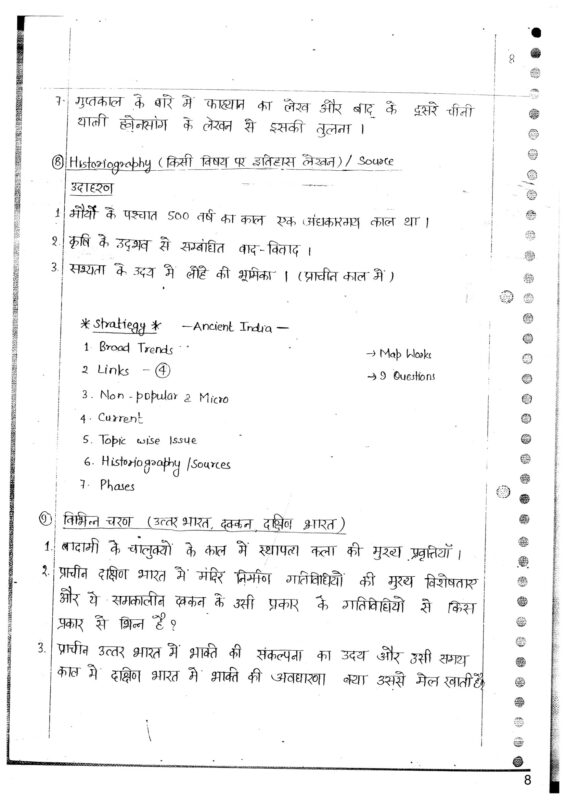 8
7. गुप्तकाल के बारे में फाह्यान का लेख और बाद के दूसरे चीनी
थात्री ह्वेनसांग के लेखन से इसकी तुलना ।
⑧ Historiography (किसी विषय पर इतिहास लेखन) / Source
उदाहरण
1 मौर्यो के पश्चात 500 वर्ष का काल एक अंधकारमय काल था ।
2. कृषि के उद्भव से सम्बंधित वाद-विवाद ।
3. सभ्यता के उदय मे लोहे की भूमिका । (प्राचीन काल में)
* Stratiegy * — Ancient India —
1 Broad Trends → Map Works
2 Links - ④ → 9 Questions
3. Non-popular & Micro
4. Current
5. Topic wise Issue
6. Historiography /Sources
7. Phases
⑨ विभिन्न चरण (उत्तर भारत, दक्कन, दक्षिण भारत)
1. बादामी के चालुक्यों के काल में स्थापत्य कला की मुख्य प्रवृत्तियाँ ।
2. प्राचीन दक्षिण भारत में मंदिर निर्माण गतिविधियों की मुख्य विशेषताए
और ये समकालीन दक्कन के उसी प्रकार के गतिविधियों से किस
प्रकार से भिन्न है ?
3. प्राचीन उत्तर भारत में भक्ति की संकल्पना का उदय और उसी समय
काल मे दक्षिण भारत में भक्ति की अवधारणा क्या उससे मेल खाती है
8